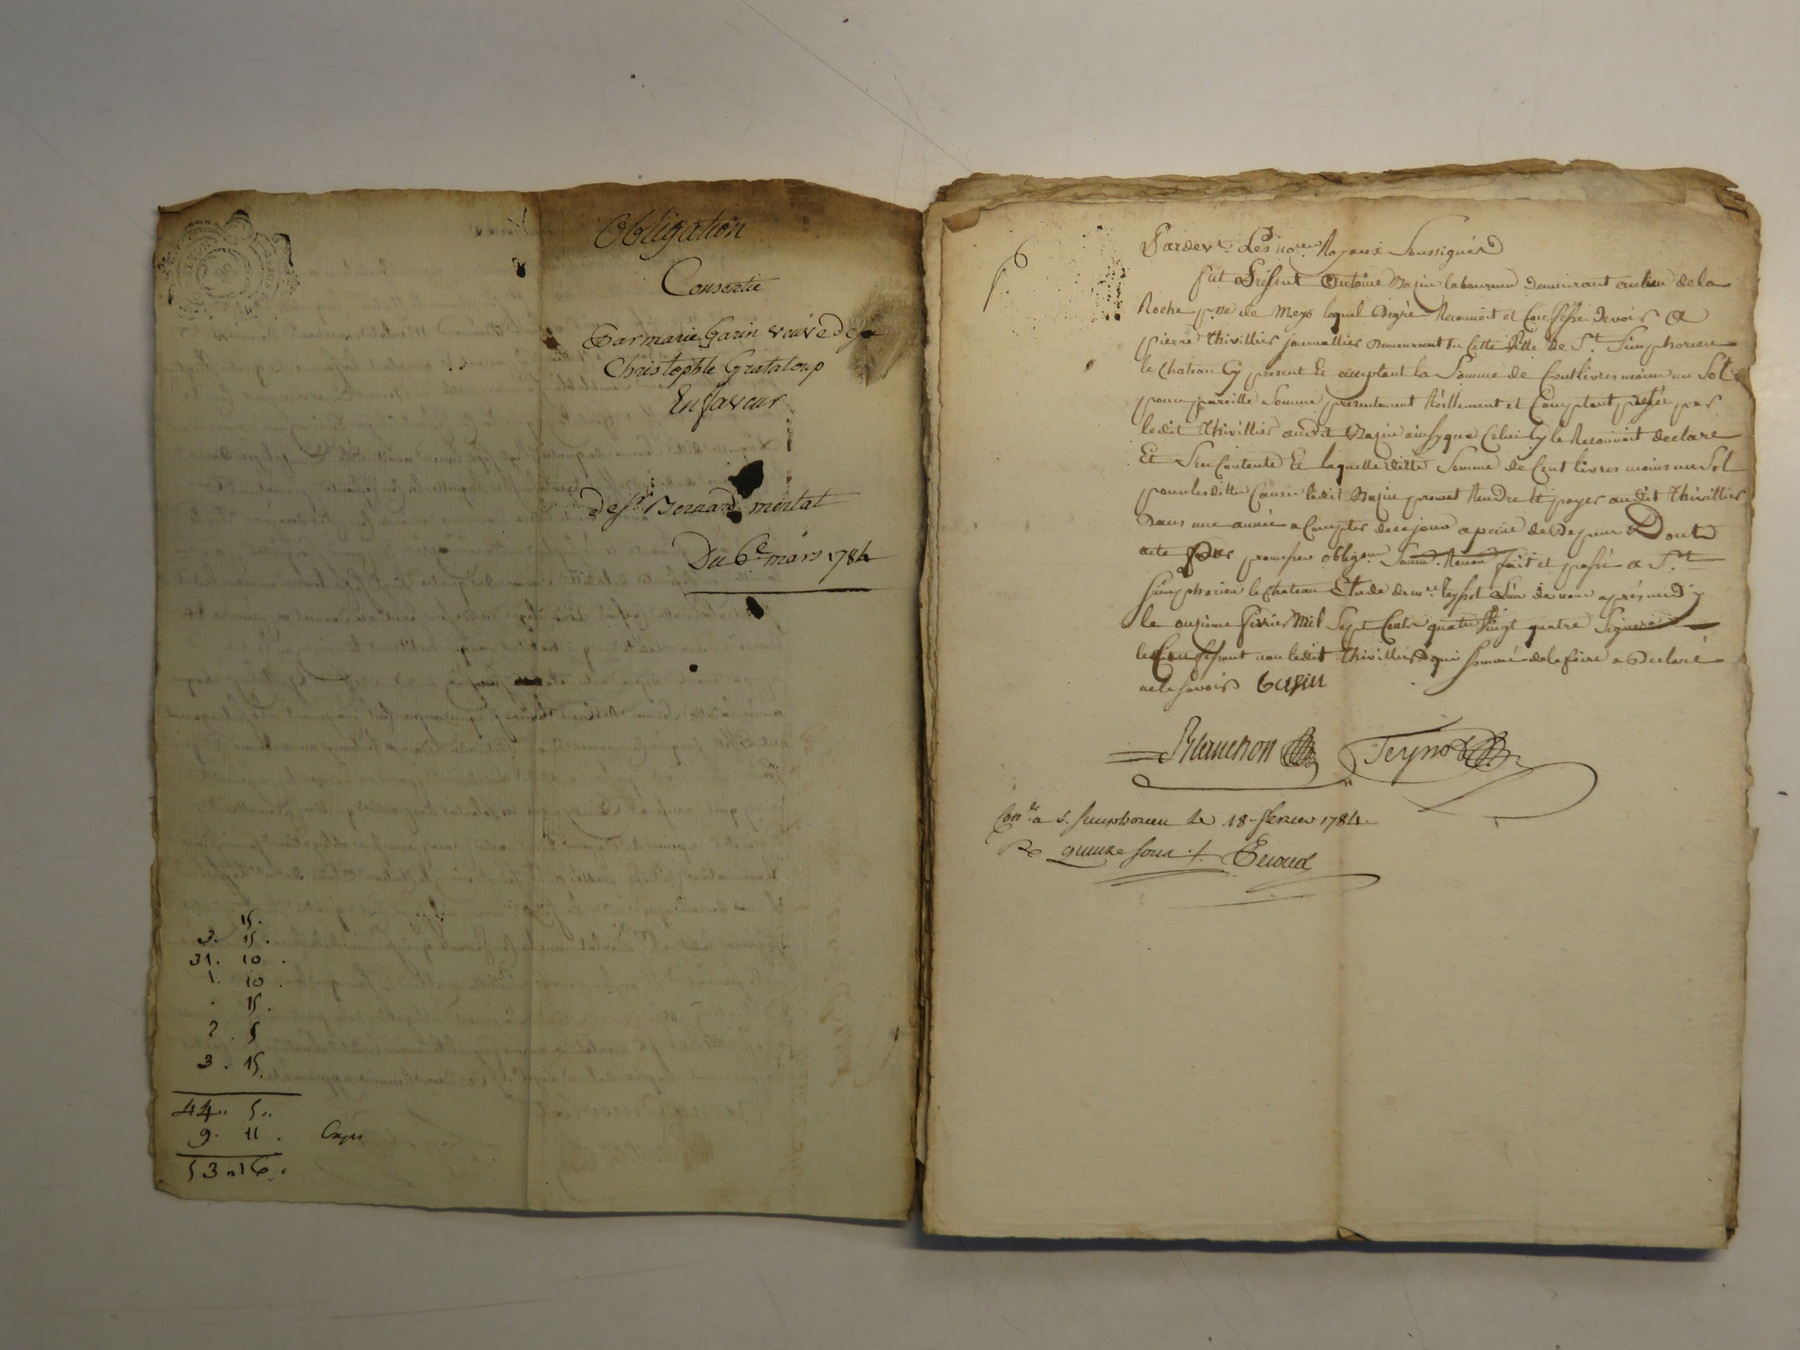 Obligation
Consentie
Par marie Garin veuve de
Christophle Grataloup
En faveur
de Sr. Bernard mertat
Du 6e mars 1784
15.
3. 15.
31. 10.
1. 10.
. 15.
2. 5
3. 15.
44.. 5..
9. 11.
53..16..
6
Pardevt. Les nores. Royaux Soussignés
fut Présent Antoine Bazin laboureur demeurant au lieu de la
Roche psse de Meys lequel Degré Reconnoit et Confesse devoir a
pierre Thivillier journallier demeurant En Cette Ville de St. Simphorien
le Chateau Cy present Et acceptant la Somme de Cent livres moins un Sol
pour pareille Somme presentement Réellement et Comptant preté par
ledit Thivillier audit Bazin ainsy que Celui Cy le Reconnoit declare
Et Sen Contente Et laquelle ditte Somme de Cent livres moins un Sol
pour les dittes Causes ledit Bazin promet Rendre Et payer audit Thivillier
Dans une année a Compter de ce jour a peine de Depens Dont
acte promesses obligeon. Soum. Renon fait et passé a St.
Simphorien le Chateau Etude de me. Teynot L'un de nous après midy
le onzieme fevrier Mil Sept Cents quatre Vingt quatre Signera
le Confessant non ledit Thivillier qui Sommé de le faire a Declaré
ne le Savoir Bazin
Blanchon Teynot
Con.le a S. Simphorien le 18. fevrier 1784.
Re quinze sous